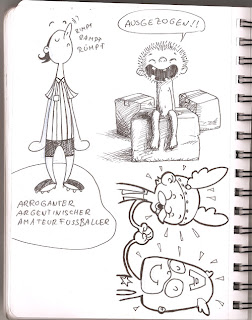 RIMPF
RÄMPF
RÜMPF
AUSGEZOGEN!!
ARROGANTER
ARGENTINISCHER
AMATEURFUSSBALLER